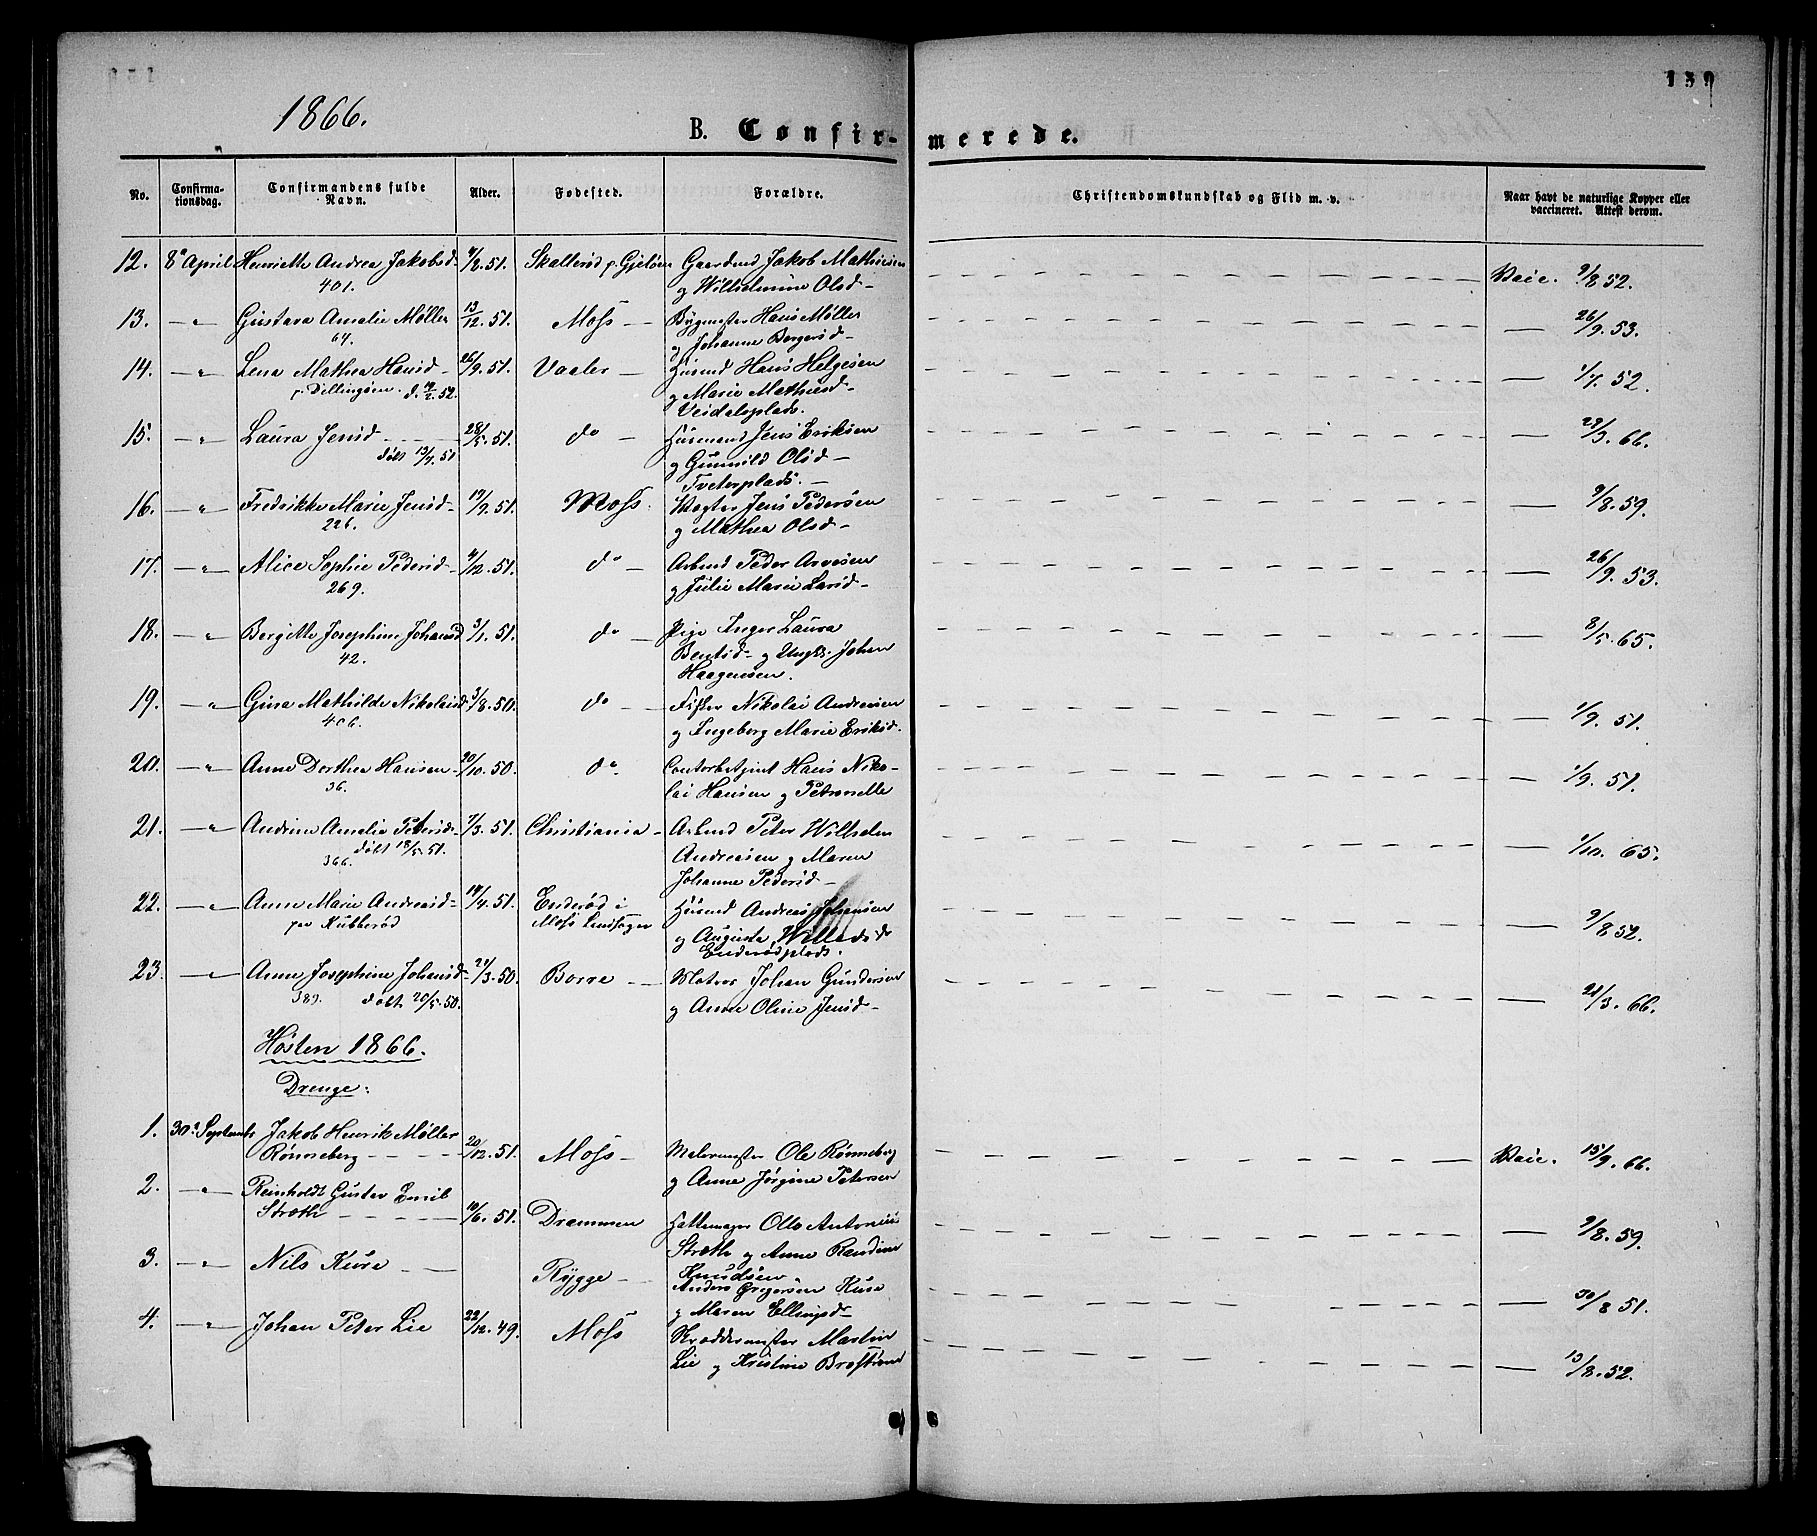 139
1866.
B. Confirmerede.
No. Confirmationsdag. Confirmandens fulde Navn. Alder. Fødested. Forældre. Christendomskundskab og Flid m. v. Naar havt de naturlige Kopper eller vaccineret. Attest derom.
12. 8de April Henriette Andrea Jakobsd. 51. Skallerød p. Gjeløen Gaardmd Jakob Mathiesen Vacc. 9/8 52.
401. og Wilhelmine Olsd.
13. —"— Gustava Amalie Møller 13/12. 51. Moss Bygmester Hans Møller — 26/9. 53.
64. og Johanne Bergerød
14. —"— Lena Mathea Hansd. 26/9. 51. Vaaler Husmd Hans Helgesen — 1/7. 52.
p. Dillingøen. d. 52. og Marie Mathiesd.
Veidalsplads.
15. —"— Laura Jensd. 28/5. 51. do Husmand Jens Eriksen — 66.
døbt 13/7. 51 og Gunnild Olsd.
Tveterplads.
16. —"— Fredrikke Marie Jensd. 19/9. 51. Moss. Vægter Jens Pedersen — 9/8. 59.
226. og Mathea Olsd.
17. —"— Alice Sophie Pedersd. 4/12. 51. do Arbmd Peder Arvesen — 26/9. 53.
269. og Julie Marie Larsd.
18. —"— Bergitte Josephine Johansd 3/1. 51. do Pige Inger Laura — 8/5. 65.
42. Bentsd. og Ungk. Johan
Haagensen.
19. —"— Gina Mathilde Nikolaisd. 3/8. 50. do Fisker Nikolai Andresen — 1/9. 51.
406. og Ingeborg Marie Eriksd.
20. —"— Anne Dorthea Hansen 20/10. 50. do. Contorbetjent Hans Niko- — 1/9. 51.
36. lai Hansen og Petronelle
21. —"— Andrine Amalia Petersd. 7/3. 51. Christiania Arbmd Peter Wilhelm — 1/10. 65.
døbt 18/5. 51. Andreasen og Maren
366. Johanne Pedersd.
22. —"— Anne Marie Andreasd. 14/4. 51. Enderød i Husmd Andreas Johansen — 9/8 52.
paa Kubberød Moss Landsogn og Augusta Willadsd.
Enderødplads.
23. —"— Anne Josephine Johansd. 21/3. 50. Borre Matros Johan Gundersen — 21/3. 66.
389. døbt 20/5. 50. og Anne Oline Jensd.
Høsten 1866.
Drenge:
1. 30te Septemb Jakob Henrik Møller
Rønneberg 20/12. 51. Moss Malermester Ole Rønneberg Vacc. 15/9. 66.
2. —"— Reinholdt Gustav Emil og Anne Jørgine Petersen
Stroth 10/6. 51. Drammen Hattemager Olle Antonius — 9/8. 59.
3. —"— Nils Kure Stroth og Anne Randine
Rygge Knudsen
Anders Gregersen Kure — 30/8 51.
4. —"— Johan Peter Lie 22/12. 49. Moss og Maren Ellingsd.
Skræddermester Martin — 13/8. 52.
Lie og Kristine Brostrøm